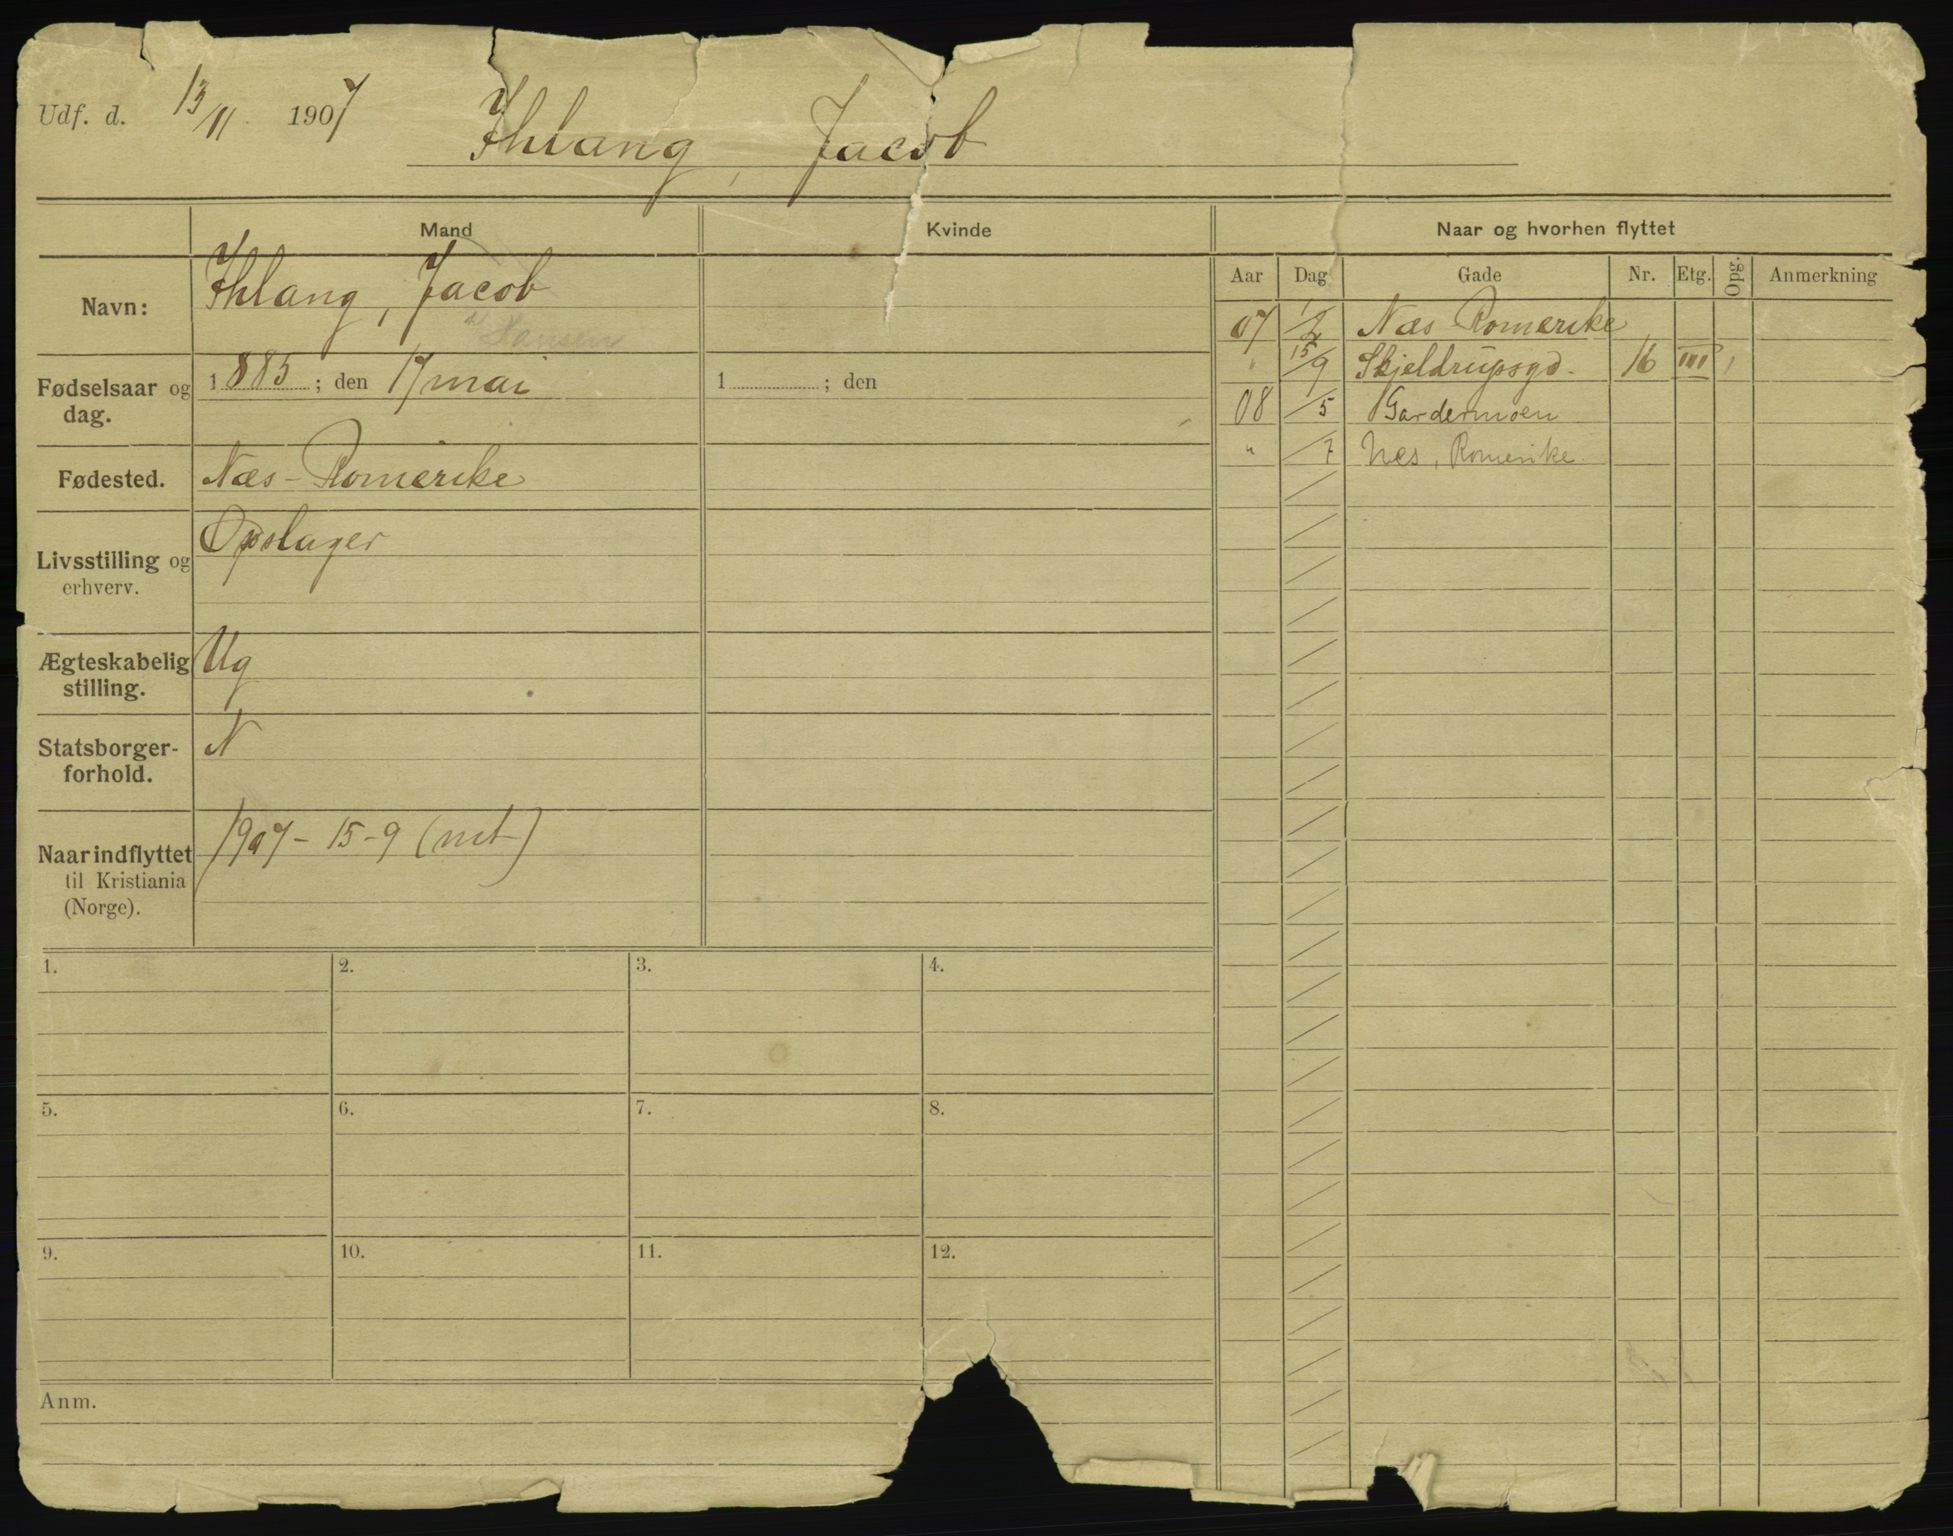 Udf. d. 13/11 1907 Ihlang, Jacob
Mand Kvinde Naar og hvorhen flyttet
Aar Dag Gade Nr. Etg. Opg. Anmerkning
Navn: Ihlang, Jacob
Hansen
Fødselsaar og dag. 1885; den 17 mai 1 ; den
Fødested. Næs - Romerike
Livsstilling og erhverv. Opslager
Ægteskabelig stilling. Ug
Statsborger-forhold. N
Naar indflyttet til Kristiania (Norge). 1907 - 15 - 9 (mt)
07 1/2 Næs Romerike
" 15/9 Skjeldrupsgd. 16 III 1
08 /5 Gardermoen
" /7 Nes, Romerike.
1. 2. 3. 4.
5. 6. 7. 8.
9. 10. 11. 12.
Anm.